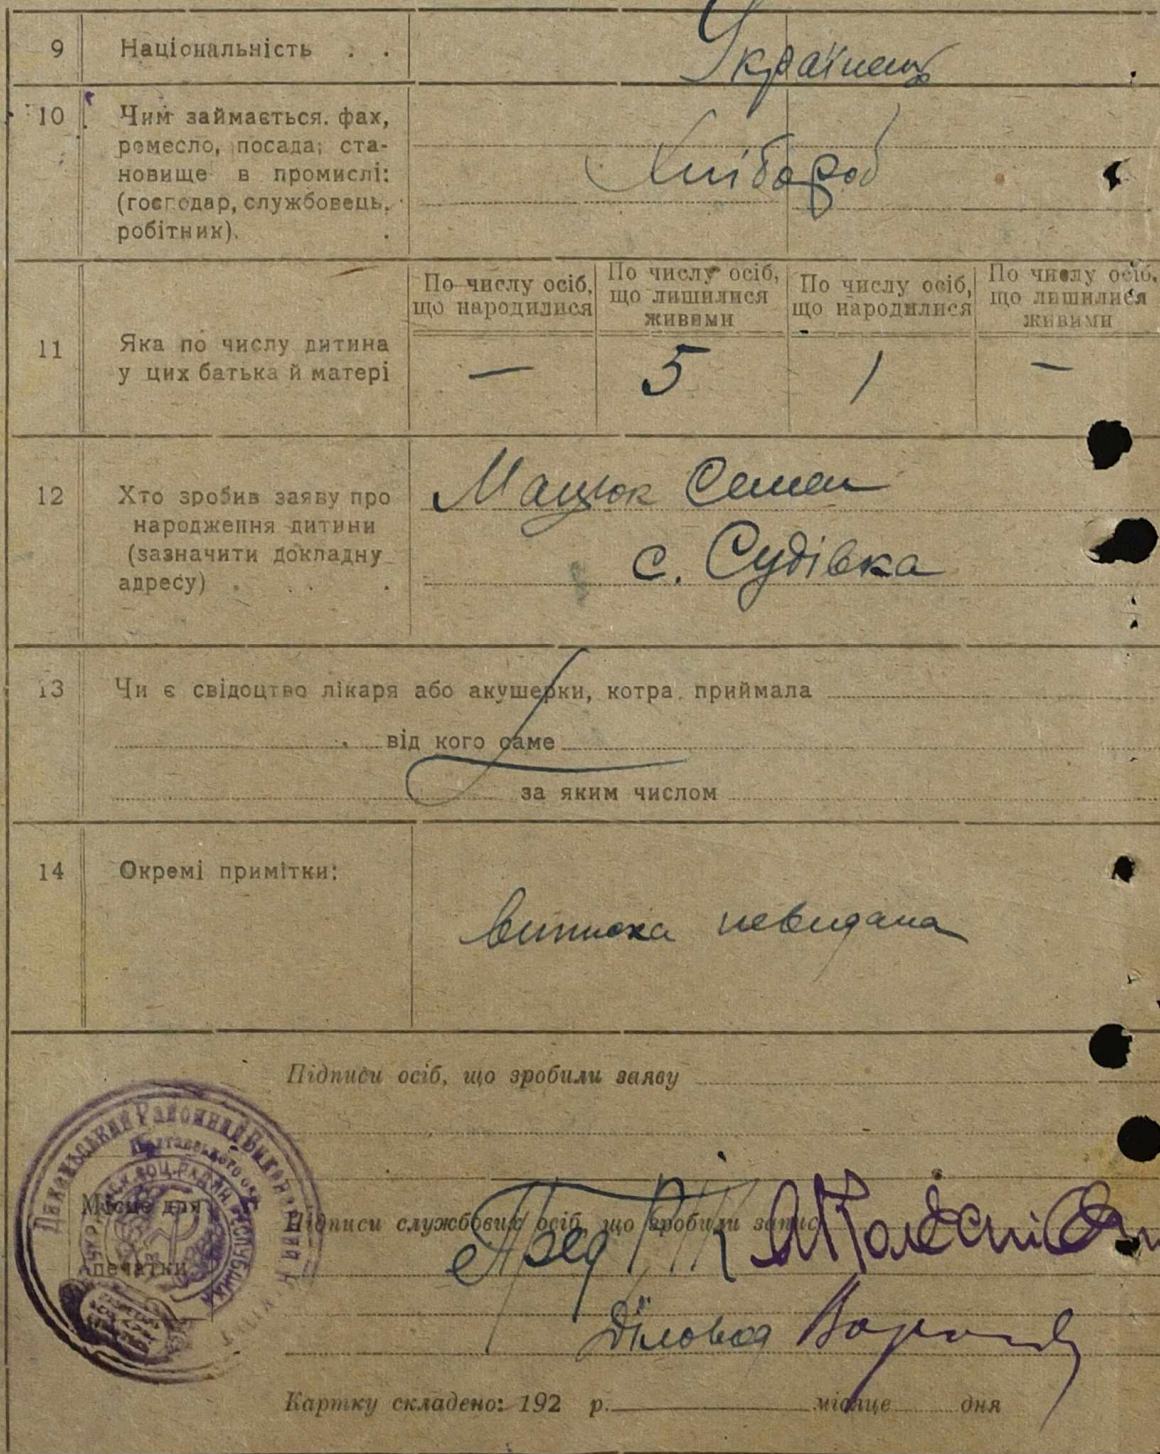 9 Національність . . Українець
10 Чим займається, фах,
ремесло, посада; ста-
новище в промислі:
(господар, службовець,
робітник). .
Хлібороб
По числу осіб, що народилися
По числу осіб, що лишилися живими
По числу осіб, що народилися
По числу осіб, що лишилися живими
11 Яка по числу дитина
у цих батька й матері
— 5 1 —
12 Хто зробив заяву про
народження дитини
(зазначити докладну
адресу) . . . .
Мацюк Семен
с. Судівка
13 Чи є свідоцтво лікаря або акушерки, котра приймала
від кого саме
за яким числом
14 Окремі примітки:
виписка невидана
Підписи осіб, що зробили заяву
Місце для
печатки
Підписи службових осіб, що зробили запис
Пред РІК
Діловод
Картку складено: 192 р. місяце дня
Диканьський Районний Виконавчий Комітет